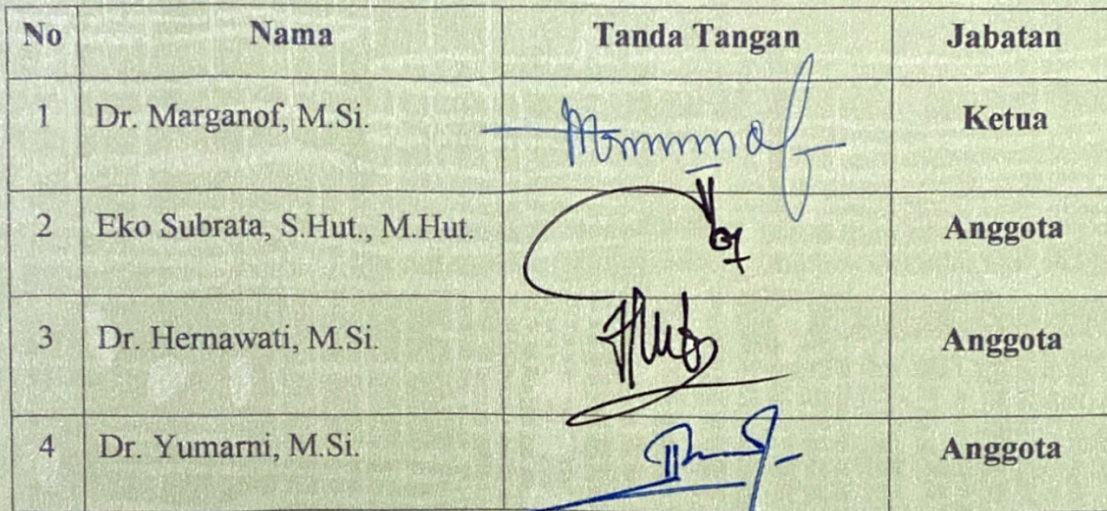 No Nama Tanda Tangan Jabatan
1 Dr. Marganof, M.Si. Ketua
2 Eko Subrata, S.Hut., M.Hut. Anggota
3 Dr. Hernawati, M.Si. Anggota
4 Dr. Yumarni, M.Si. Anggota